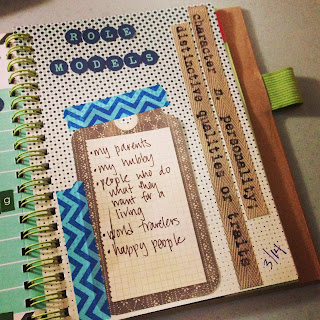 ROLE
MODELS
• my parents
• my hubby
• people who do
what they
want for a
living
• world travelers
• happy people
character n. personality,
distinctive qualities or traits
3/14
g